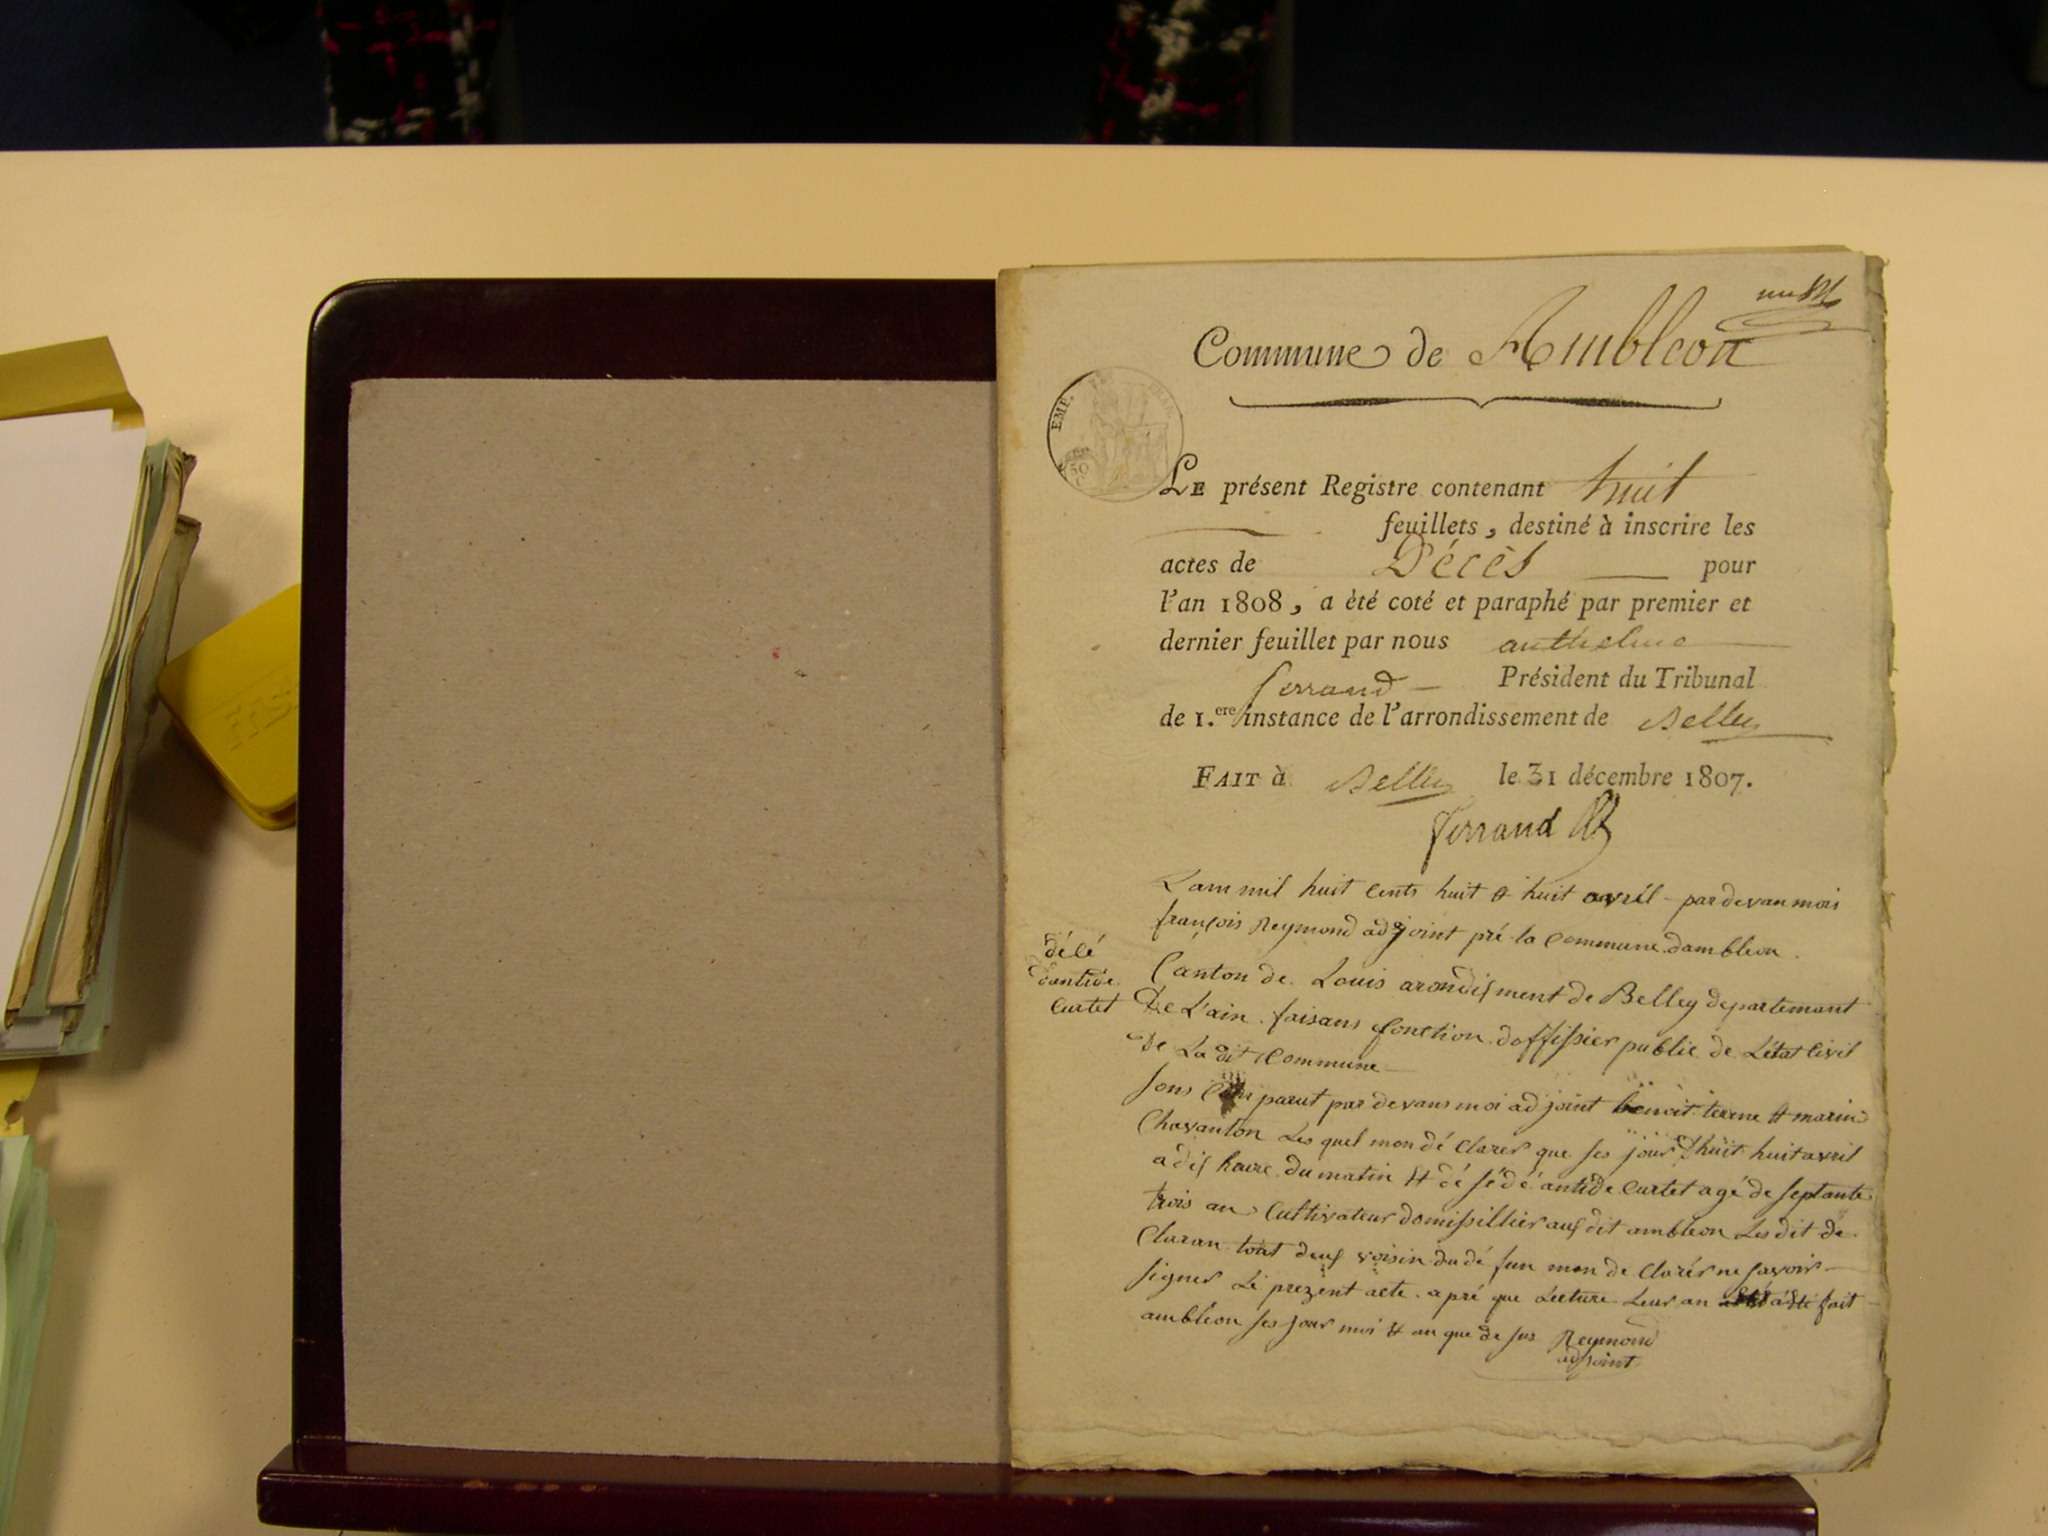 Commune de Ambleon
EMP.
50
C
LE présent Registre contenant huit
feuillets, destiné à inscrire les
actes de Décès pour
l'an 1808, a èté coté et paraphé par premier et
dernier feuillet par nous anthelme
ferrand Président du Tribunal
de 1.ere instance de l'arrondissement de Belley
FAIT à Belley le 31 décembre 1807.
ferrand
L'am mil huit cents huit & huit avril par devan moi
françois Reymond adjoint pré la Commune dambleon
Canton de Louis arondisment de Belley departemant
De L'ain faisans fonction doffissier public de L'état Civil
De La dit Commune
sons parut par devans moi adjoint benoit terme & marin
Chavanton Les quel mon dé Clarer que ses jour d'huit huit avril
a dis heure du matin & dé sédé antide Curtet agé de septante
trois an Cultivateur domissillier aus dit ambleon Les dit dé
Claran tout deus voisin du dé fun mon de Clarér ne savoir
signer Le prezent acte apré que Lecture Leur an a été fait
ambléon ses jour moi & an que de sus Reymond
adjoint
décé
dantide
Curtet